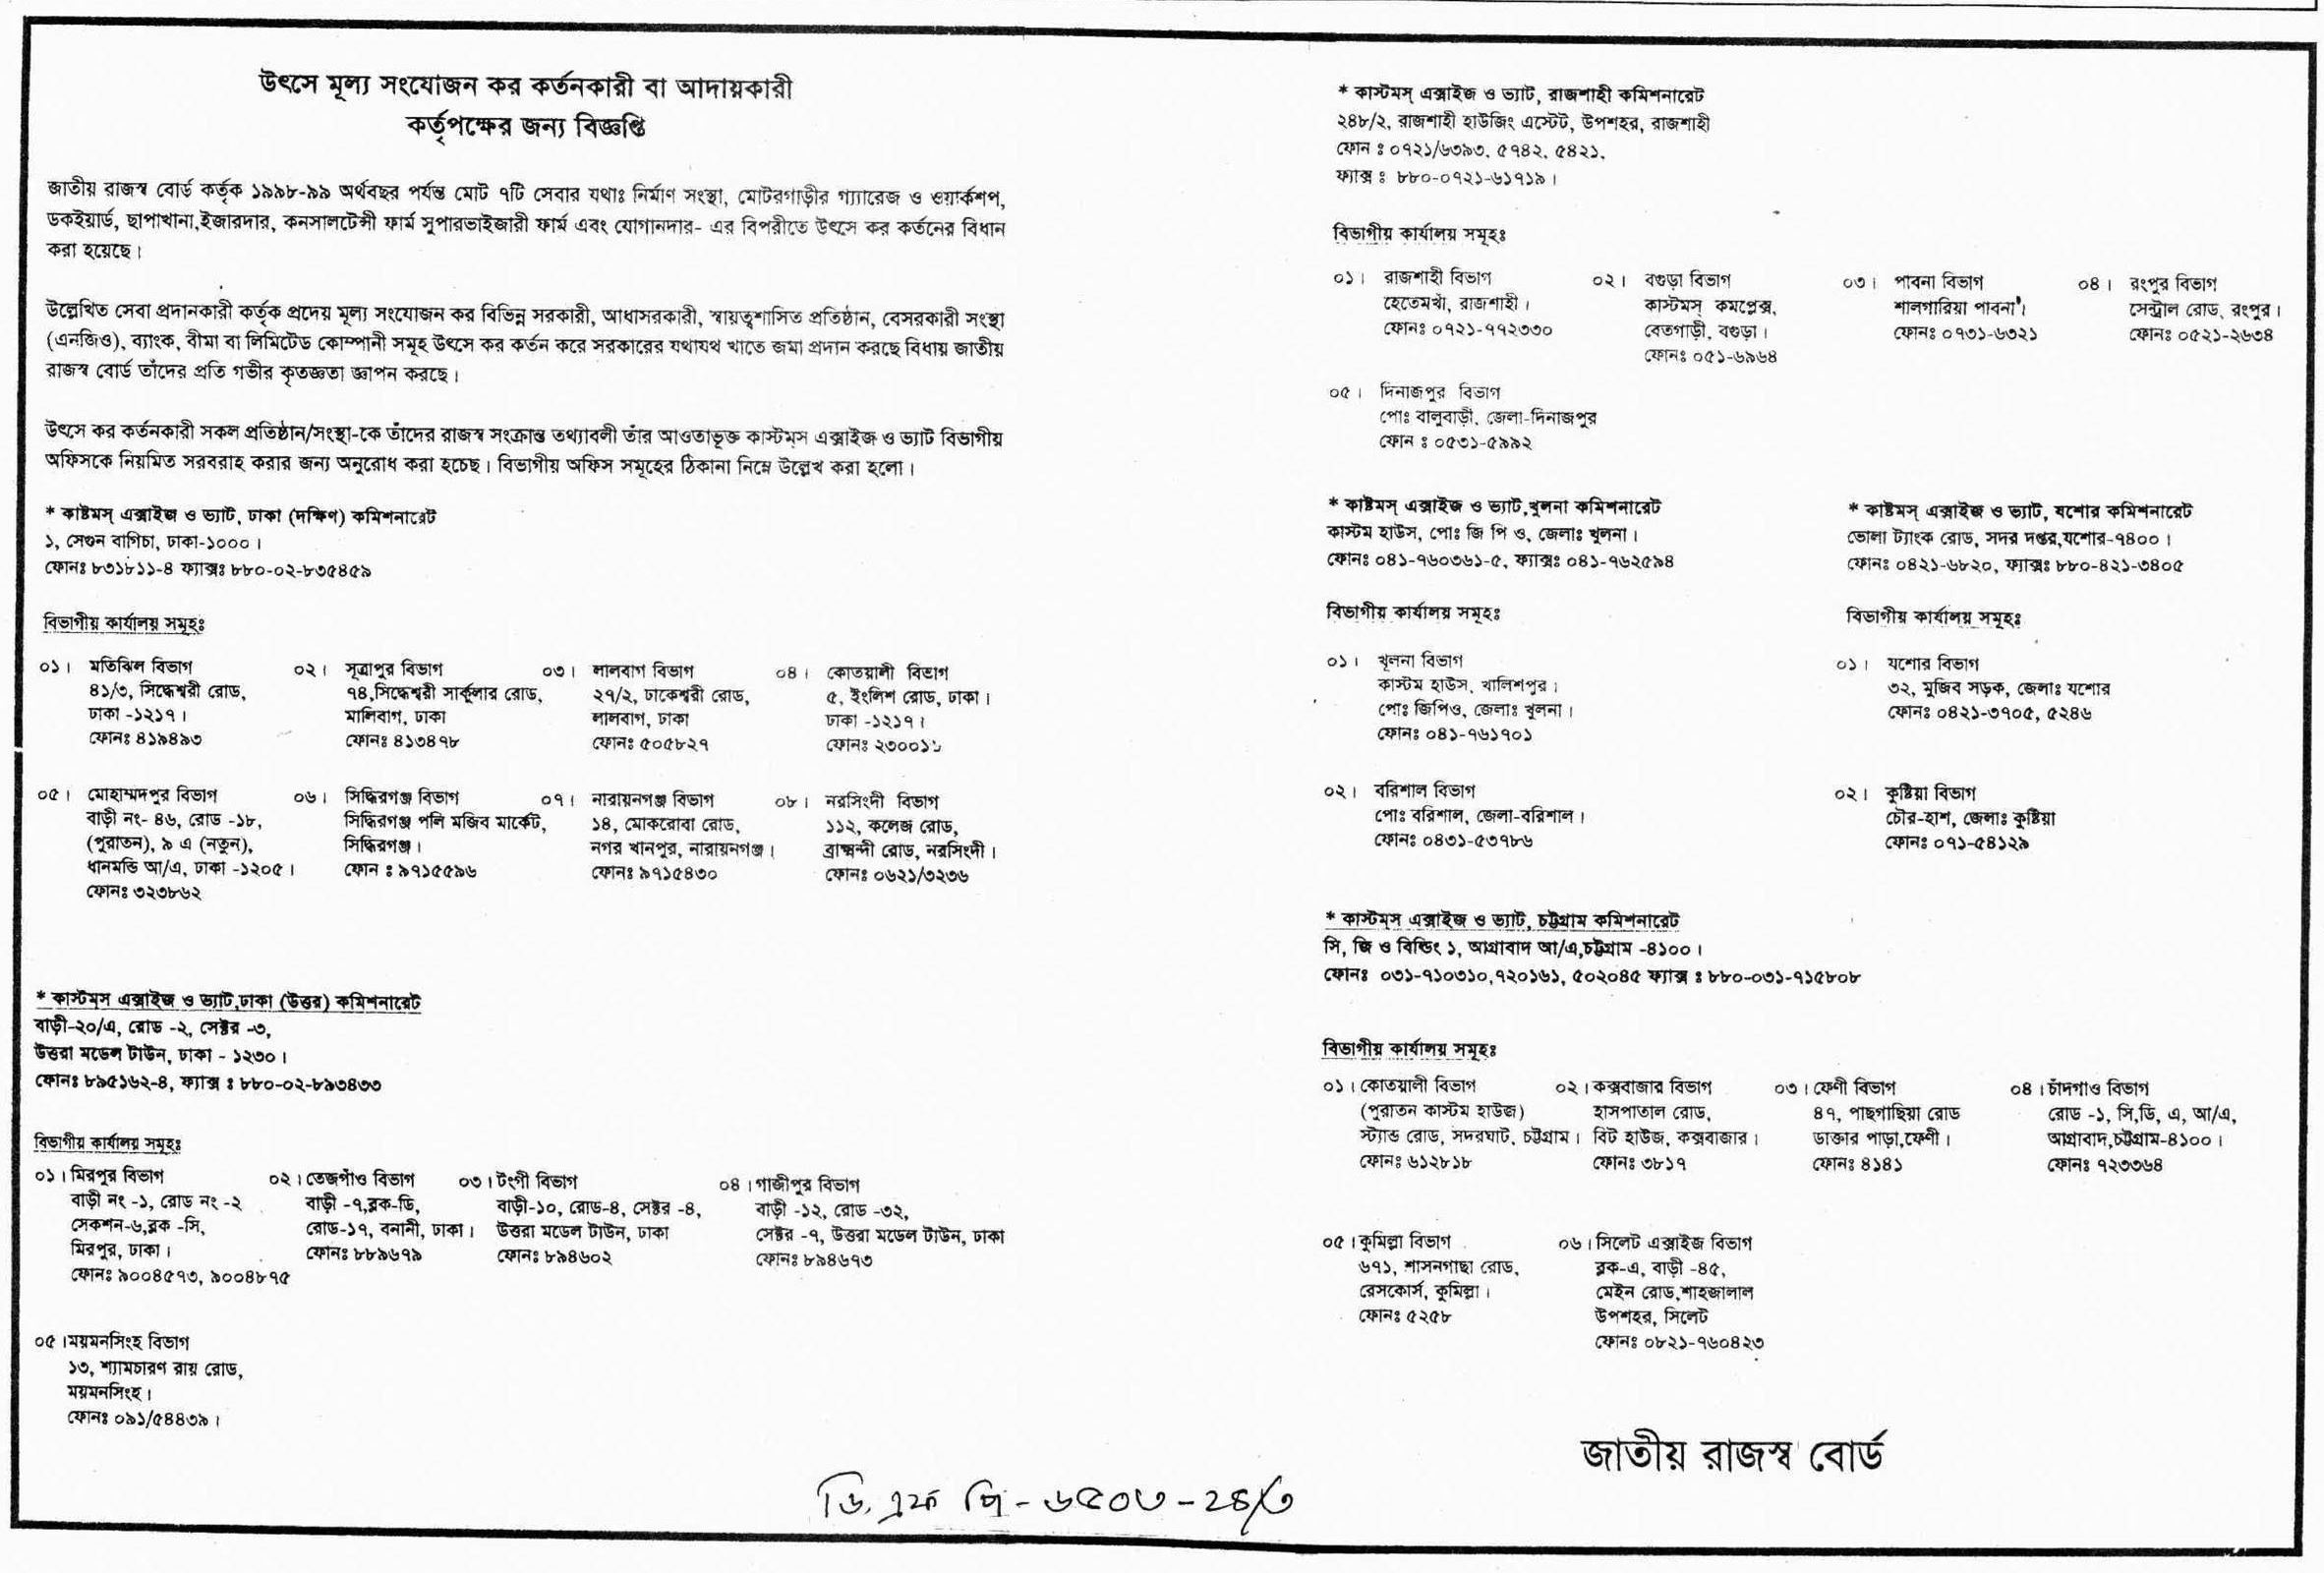 উৎসে মূল্য সংযোজন কর কর্তনকারী বা আদায়কারী
কর্তৃপক্ষের জন্য বিজ্ঞপ্তি
জাতীয় রাজস্ব বোর্ড কর্তৃক ১৯৯৮-৯৯ অর্থবছর পর্যন্ত মোট ৭টি সেবার যথাঃ নির্মাণ সংস্থা, মোটরগাড়ীর গ্যারেজ ও ওয়ার্কশপ,
ডকইয়ার্ড, ছাপাখানা,ইজারদার, কনসালটেন্সী ফার্ম সুপারভাইজারী ফার্ম এবং যোগানদার- এর বিপরীতে উৎসে কর কর্তনের বিধান
করা হয়েছে।
উল্লেখিত সেবা প্রদানকারী কর্তৃক প্রদেয় মূল্য সংযোজন কর বিভিন্ন সরকারী, আধাসরকারী, স্বায়ত্বশাসিত প্রতিষ্ঠান, বেসরকারী সংস্থা
(এনজিও), ব্যাংক, বীমা বা লিমিটেড কোম্পানী সমূহ উৎসে কর কর্তন করে সরকারের যথাযথ খাতে জমা প্রদান করছে বিধায় জাতীয়
রাজস্ব বোর্ড তাঁদের প্রতি গভীর কৃতজ্ঞতা জ্ঞাপন করছে।
উৎসে কর কর্তনকারী সকল প্রতিষ্ঠান/সংস্থা-কে তাঁদের রাজস্ব সংক্রান্ত তথ্যাবলী তাঁর আওতাভূক্ত কাস্টমস্ এক্সাইজ ও ভ্যাট বিভাগীয়
অফিসকে নিয়মিত সরবরাহ করার জন্য অনুরোধ করা হচেছ। বিভাগীয় অফিস সমূহের ঠিকানা নিম্নে উল্লেখ করা হলো।
* কাষ্টমস্ এক্সাইজ ও ভ্যাট, ঢাকা (দক্ষিণ) কমিশনারেট
১, সেগুন বাগিচা, ঢাকা-১০০০।
ফোনঃ ৮৩১৮১১-৪ ফ্যাক্সঃ ৮৮০-০২-৮৩৫৪৫৯
বিভাগীয় কার্যালয় সমূহঃ
০১। মতিঝিল বিভাগ
৪১/৩, সিদ্ধেশ্বরী রোড,
ঢাকা -১২১৭।
ফোনঃ ৪১৯৪৯৩
০২। সূত্রাপুর বিভাগ
৭৪,সিদ্ধেশ্বরী সার্কুলার রোড,
মালিবাগ, ঢাকা
ফোনঃ ৪১৩৪৭৮
০৩। লালবাগ বিভাগ
২৭/২, ঢাকেশ্বরী রোড,
লালবাগ, ঢাকা
ফোনঃ ৫০৫৮২৭
০৪। কোতয়ালী বিভাগ
৫, ইংলিশ রোড, ঢাকা।
ঢাকা -১২১৭।
ফোনঃ
০৫। মোহাম্মদপুর বিভাগ
বাড়ী নং- ৪৬, রোড -১৮,
(পুরাতন), ৯ এ (নতুন),
ধানমন্ডি আ/এ, ঢাকা -১২০৫।
ফোনঃ ৩২৩৮৬২
০৬। সিদ্ধিরগঞ্জ বিভাগ
সিদ্ধিরগঞ্জ পলি মজিব মার্কেট,
সিদ্ধিরগঞ্জ।
ফোন ঃ ৯৭১৫৫৯৬
০৭। নারায়নগঞ্জ বিভাগ
১৪, মোকরোবা রোড,
নগর খানপুর, নারায়নগঞ্জ।
ফোনঃ ৯৭১৫৪৩০
০৮। নরসিংদী বিভাগ
১১২, কলেজ রোড,
ব্রাহ্মন্দী রোড, নরসিংদী।
ফোনঃ ০৬২১/৩২৩৬
* কাস্টমস্ এক্সাইজ ও ভ্যাট,ঢাকা (উত্তর) কমিশনারেট
বাড়ী-২০/এ, রোড -২, সেক্টর -৩,
উত্তরা মডেল টাউন, ঢাকা - ১২৩০।
ফোনঃ ৮৯৫১৬২-৪, ফ্যাক্স ঃ ৮৮০-০২-৮৯৩৪৩৩
বিভাগীয় কার্যালয় সমূহঃ
০১। মিরপুর বিভাগ
বাড়ী নং -১, রোড নং -২
সেকশন-৬,ব্লক -সি,
মিরপুর, ঢাকা।
ফোনঃ ৯০০৪৫৭৩, ৯০০৪৮৭৫
০২। তেজগাঁও বিভাগ
বাড়ী -৭,ব্লক-ডি,
রোড-১৭, বনানী, ঢাকা।
ফোনঃ ৮৮৯৬৭৯
০৩। টংগী বিভাগ
বাড়ী-১০, রোড-৪, সেক্টর -৪,
উত্তরা মডেল টাউন, ঢাকা
ফোনঃ ৮৯৪৬০২
০৪। গাজীপুর বিভাগ
বাড়ী -১২, রোড -৩২,
সেক্টর -৭, উত্তরা মডেল টাউন, ঢাকা
ফোনঃ ৮৯৪৬৭৩
০৫।ময়মনসিংহ বিভাগ
১৩, শ্যামচারণ রায় রোড,
ময়মনসিংহ।
ফোনঃ ০৯১/৫৪৪৩৯।
* কাস্টমস্ এক্সাইজ ও ভ্যাট, রাজশাহী কমিশনারেট
২৪৮/২, রাজশাহী হাউজিং এস্টেট, উপশহর, রাজশাহী
ফোন ঃ ০৭২১/৬৩৯৩, ৫৭৪২, ৫৪২১,
ফ্যাক্স ঃ ৮৮০-০৭২১-৬১৭১৯।
বিভাগীয় কার্যালয় সমূহঃ
০১। রাজশাহী বিভাগ
হেতেমখাঁ, রাজশাহী।
ফোনঃ ০৭২১-৭৭২৩৩০
০২। বগুড়া বিভাগ
কাস্টমস্ কমপ্লেক্স,
বেতগাড়ী, বগুড়া।
ফোনঃ ০৫১-৬৯৬৪
০৩। পাবনা বিভাগ
শালগারিয়া পাবনা।
ফোনঃ ০৭৩১-৬৩২১
০৪। রংপুর বিভাগ
সেন্ট্রাল রোড, রংপুর।
ফোনঃ ০৫২১-২৬৩৪
০৫। দিনাজপুর বিভাগ
পোঃ বালুবাড়ী, জেলা-দিনাজপুর
ফোন ঃ ০৫৩১-৫৯৯২
* কাষ্টমস্ এক্সাইজ ও ভ্যাট,খুলনা কমিশনারেট
কাস্টম হাউস, পোঃ জি পি ও, জেলাঃ খুলনা।
ফোনঃ ০৪১-৭৬০৩৬১-৫, ফ্যাক্সঃ ০৪১-৭৬২৫৯৪
বিভাগীয় কার্যালয় সমূহঃ
০১। খুলনা বিভাগ
কাস্টম হাউস, খালিশপুর।
পোঃ জিপিও, জেলাঃ খুলনা।
ফোনঃ ০৪১-৭৬১৭০১
০২। বরিশাল বিভাগ
পোঃ বরিশাল, জেলা-বরিশাল।
ফোনঃ ০৪৩১-৫৩৭৮৬
* কাষ্টমস্ এক্সাইজ ও ভ্যাট, যশোর কমিশনারেট
ভোলা ট্যাংক রোড, সদর দপ্তর,যশোর-৭৪০০।
ফোনঃ ০৪২১-৬৮২০, ফ্যাক্সঃ ৮৮০-৪২১-৩৪০৫
বিভাগীয় কার্যালয় সমূহঃ
০১। যশোর বিভাগ
৩২, মুজিব সড়ক, জেলাঃ যশোর
ফোনঃ ০৪২১-৩৭০৫, ৫২৪৬
০২। কুষ্টিয়া বিভাগ
চৌর-হাশ, জেলাঃ কুষ্টিয়া
ফোনঃ ০৭১-৫৪১২৯
* কাস্টমস্ এক্সাইজ ও ভ্যাট, চট্টগ্রাম কমিশনারেট
সি, জি ও বিল্ডিং ১, আগ্রাবাদ আ/এ,চট্টগ্রাম -৪১০০।
ফোনঃ ০৩১-৭১০৩১০,৭২০১৬১, ৫০২০৪৫ ফ্যাক্স ঃ ৮৮০-০৩১-৭১৫৮০৮
বিভাগীয় কার্যালয় সমূহঃ
০১। কোতয়ালী বিভাগ
(পুরাতন কাস্টম হাউজ)
স্ট্যান্ড রোড, সদরঘাট, চট্টগ্রাম।
ফোনঃ ৬১২৮১৮
০২। কক্সবাজার বিভাগ
হাসপাতাল রোড,
বিট হাউজ, কক্সবাজার।
ফোনঃ ৩৮১৭
০৩। ফেণী বিভাগ
৪৭, পাছগাছিয়া রোড
ডাক্তার পাড়া,ফেণী।
ফোনঃ ৪১৪১
০৪।চাঁদগাও বিভাগ
রোড -১, সি,ডি, এ, আ/এ,
আগ্রাবাদ,চট্টগ্রাম-৪১০০।
ফোনঃ ৭২৩৩৬৪
০৫।কুমিল্লা বিভাগ
৬৭১, শাসনগাছা রোড,
রেসকোর্স, কুমিল্লা।
ফোনঃ ৫২৫৮
০৬।সিলেট এক্সাইজ বিভাগ
ব্লক-এ, বাড়ী -৪৫,
মেইন রোড,শাহজালাল
উপশহর, সিলেট
ফোনঃ ০৮২১-৭৬০৪২৩
জাতীয় রাজস্ব বোর্ড
ডি. এফ পি - ৬৫০৩ - ২৪/৩